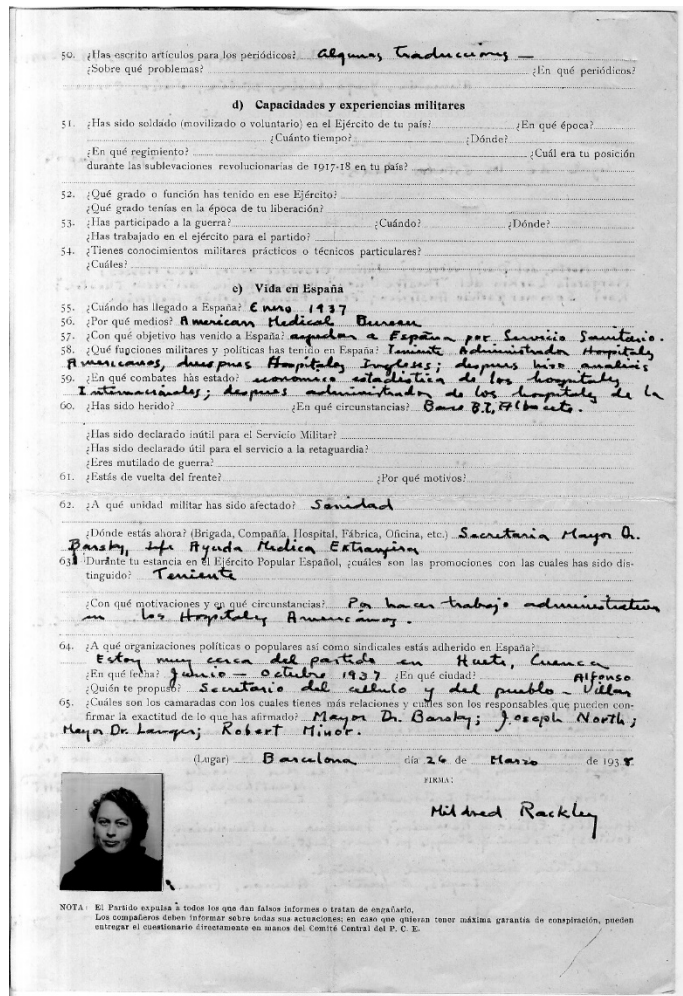 50. ¿Has escrito artículos para los periódicos? Algunas traducciones —
¿Sobre qué problemas? ¿En qué periódicos?
d) Capacidades y experiencias militares
51. ¿Has sido soldado (movilizado o voluntario) en el Ejército de tu país? ¿En qué época?
¿Cuánto tiempo? ¿Dónde?
¿En qué regimiento? ¿Cuál era tu posición
durante las sublevaciones revolucionarias de 1917-18 en tu país?
52. ¿Qué grado o función has tenido en ese Ejército?
¿Qué grado tenías en la época de tu liberación?
53. ¿Has participado a la guerra? ¿Cuándo? ¿Dónde?
¿Has trabajado en el ejército para el partido?
54. ¿Tienes conocimientos militares prácticos o técnicos particulares?
¿Cuáles?
e) Vida en España
55. ¿Cuándo has llegado a España? Enero 1937
56. ¿Por qué medios? American Medical Bureau
57. ¿Con qué objetivo has venido a España? ayudar a España por Servicio Sanitario.
58. ¿Qué funciones militares y políticas has tenido en España? Teniente Administrador Hospitales
Americanos, despues Hospitales Ingleses; despues hizo analisis
59. ¿En qué combates has estado? economico estadistica de los hospitales
Internacionales; despues administrador de los hospitales de la
60. ¿Has sido herido? ¿En qué circunstancias? Base B.I, Albacete.
¿Has sido declarado inútil para el Servicio Militar?
¿Has sido declarado útil para el servicio a la retaguardia?
¿Eres mutilado de guerra?
61. ¿Estás de vuelta del frente? ¿Por qué motivos?
62. ¿A qué unidad militar has sido afectado? Sanidad
¿Dónde estás ahora? (Brigada, Compañía, Hospital, Fábrica, Oficina, etc.) Secretaria Mayor Dr.
Barsky, Jefe Ayuda Medica Extranjera
63. Durante tu estancia en el Ejército Popular Español, ¿cuáles son las promociones con las cuales has sido dis-
tinguido? Teniente
¿Con qué motivaciones y en qué circunstancias? Por hacer trabajo administrativo
en los Hospitales Americanos.
64. ¿A qué organizaciones políticas o populares así como sindicales estás adherido en España?
Estoy muy cerca del partido en Huete, Cuenca
¿En qué fecha? Junio — Octubre 1937 ¿En qué ciudad? Alfonso
¿Quién te propuso? Secretario del cellulo y del pueblo - Villar
65. ¿Cuáles son los camaradas con los cuales tienes más relaciones y cuáles son los responsables que pueden con-
firmar la exactitud de lo que has afirmado? Mayor Dr. Barsky; Joseph North;
Mayor Dr. Robert Minor.
(Lugar) Barcelona día 26 de Marzo de 1938
FIRMA:
Mildred Rackley
NOTA: El Partido expulsa a todos los que dan falsos informes o tratan de engañarlo.
Los compañeros deben informar sobre todas sus actuaciones; en caso que quieran tener máxima garantía de conspiración, pueden
entregar el cuestionario directamente en manos del Comité Central del P. C. E.